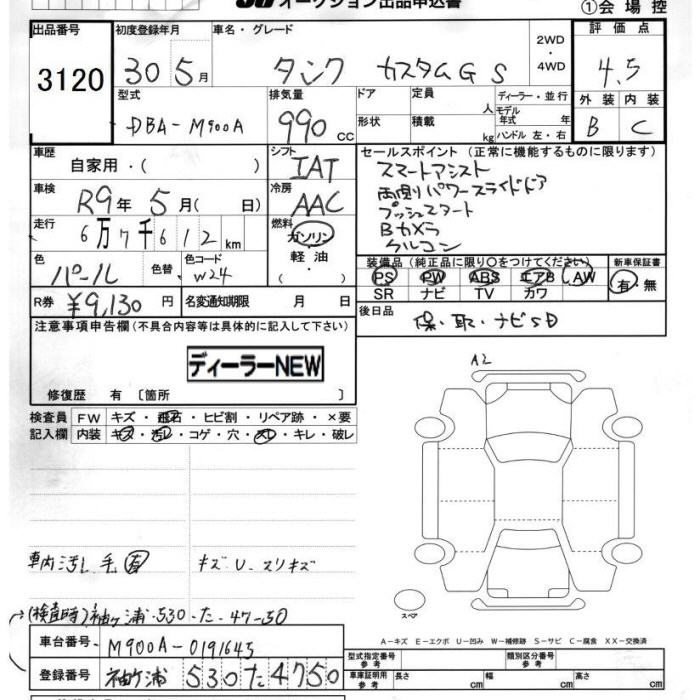 オークション出品申込書
①会場控
出品番号
3120
初度登録年月
30 5月
車名・グレード
タンク カスタムG S
2WD
・
4WD
評価点
4.5
外装 内装
B C
型式
DBA-M900A
排気量
990 cc
ドア
形状
定員
人
積載
kg
ディーラー・並行
モデル
年式 年
ハンドル 左・右
車歴
自家用・( )
シフト
IAT
車検
R9年 5月( 日)
冷房
AAC
走行
6万7千612km
燃料
ガソリン
・
軽油
・
( )
色
パール
色替
色コード
W24
R券
¥9,130円
名変通知期限 月 日
セールスポイント(正常に機能するものに限ります)
スマートアシスト
両側パワースライドドア
プッシュスタート
Bカメラ
クルコン
装備品(純正品に限り○をつけてください)
PS PW ABS エアB AW
SR ナビ TV カワ
新車保証書
有・無
後日品
保・取・ナビSD
注意事項申告欄(不具合内容等は具体的に記入して下さい)
ディーラーNEW
修復歴 有〔箇所 〕
検査員
記入欄
FW キズ・飛石・ヒビ割・リペア跡・×要
内装 キズ・汚レ・コゲ・穴・スレ・キレ・破レ
車内汚レ毛有 キズU.スリキズ
(検査時)袖ケ浦.530.た.47-50
車台番号
M900A-0191645
登録番号
袖ケ浦 530た4750
A2
スペア
A-キズ E-エクボ U-凹み W-補修跡 S-サビ C-腐食 XX-交換済
型式指定番号
参考
類別区分番号
参考
車庫証明用
参考
長さ cm
幅 cm
高さ cm